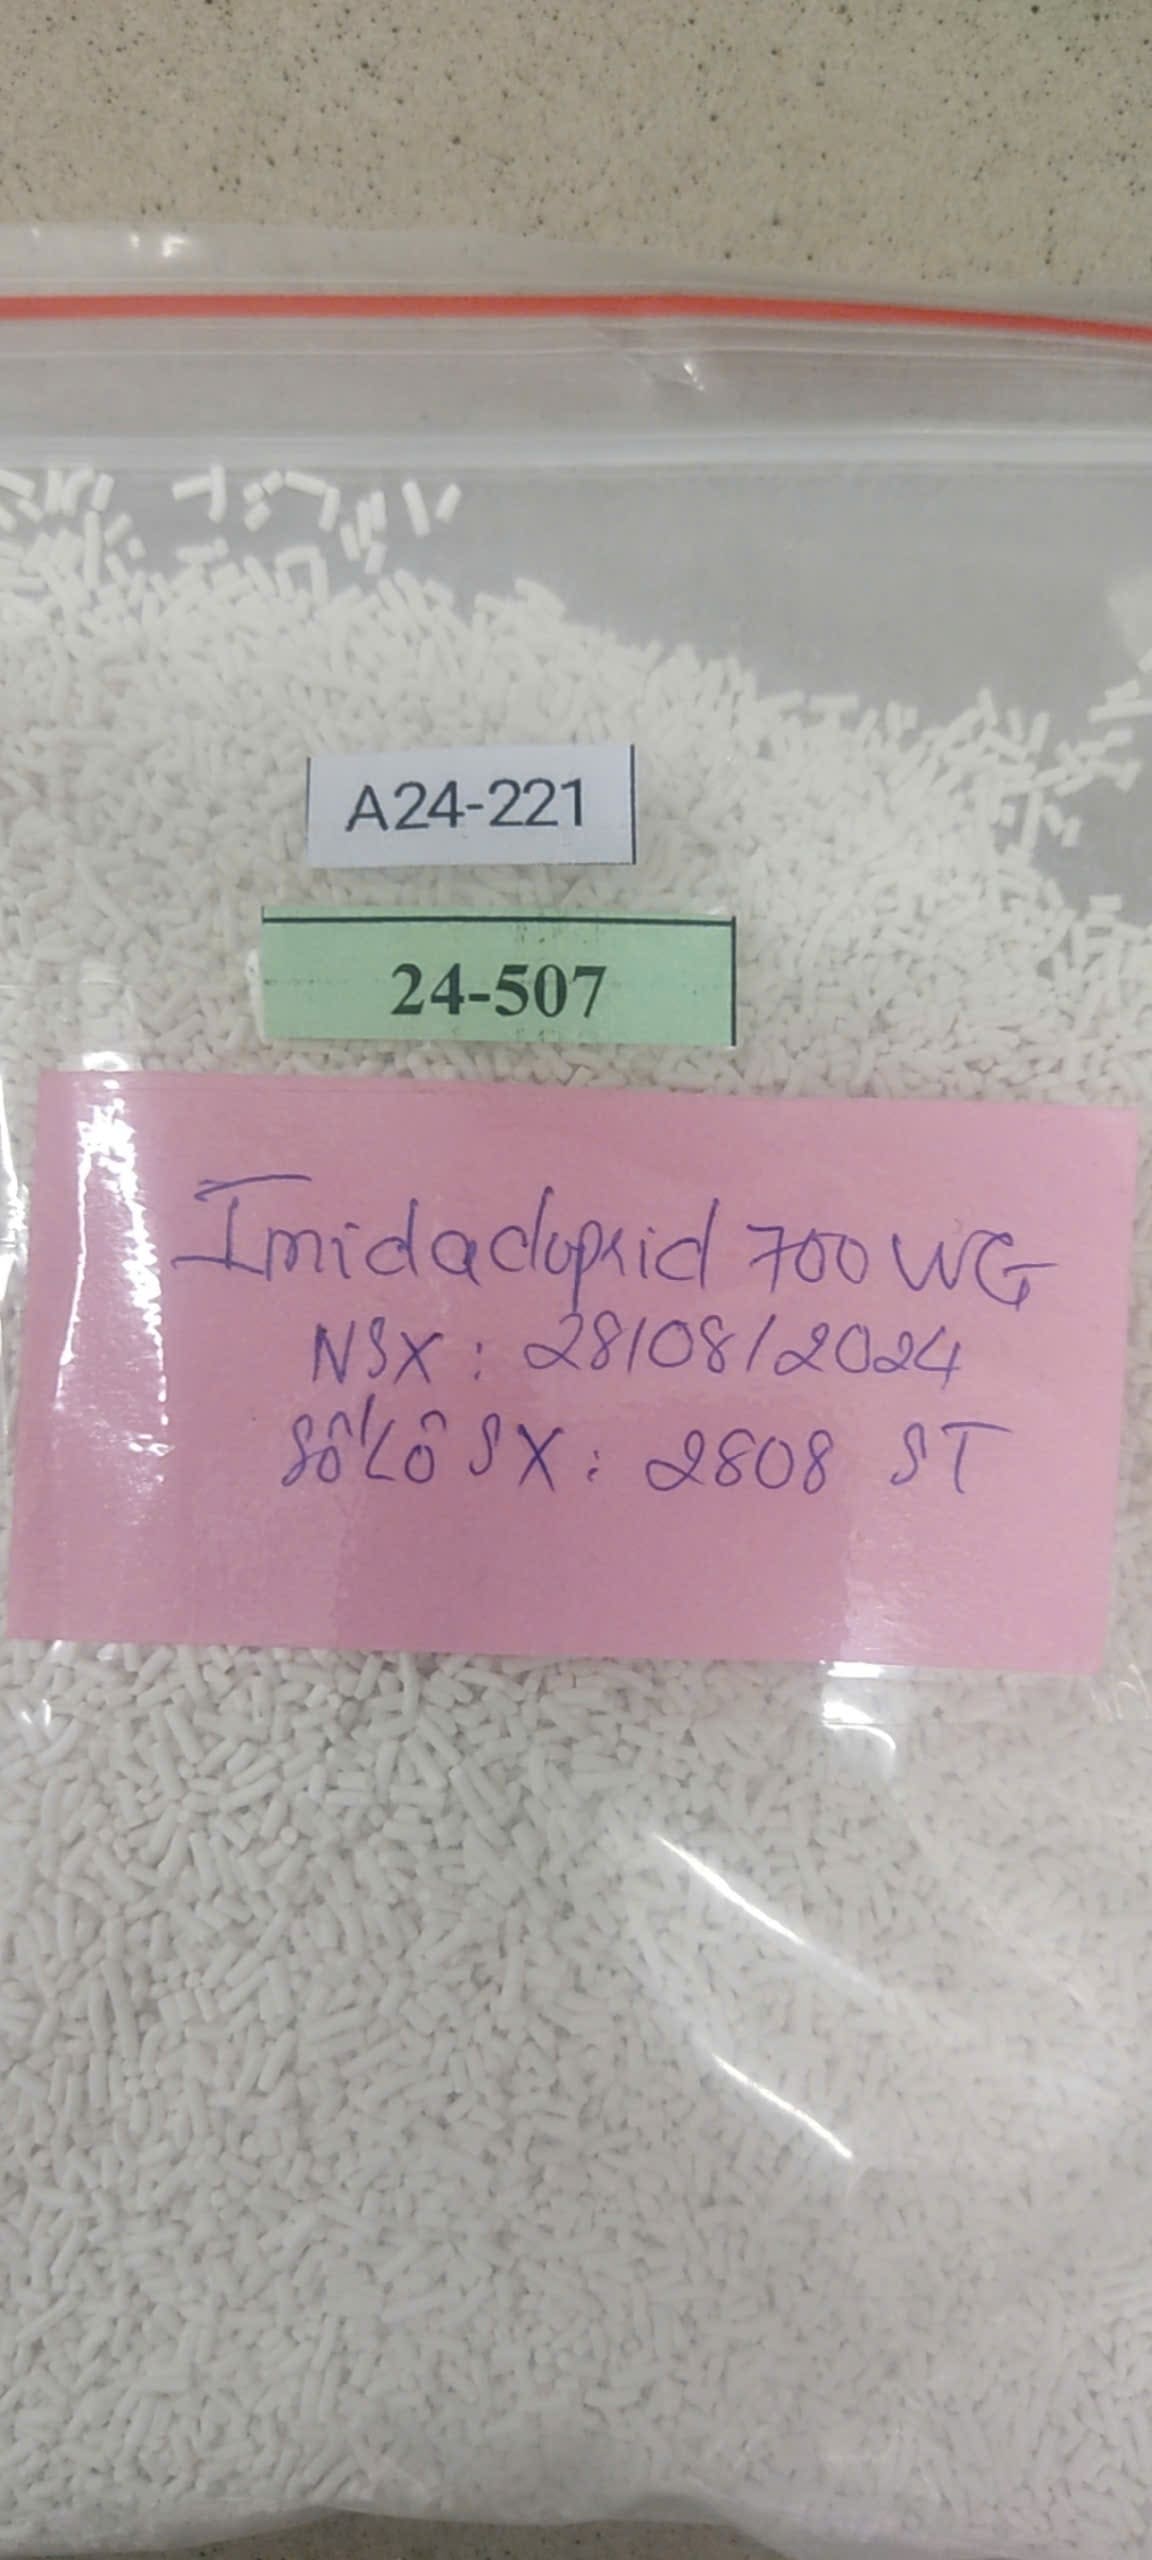 A24-221
24-507
Imidacloprid 700 WG
NSX: 28/08/2024
Số Lô SX: 2808 ST